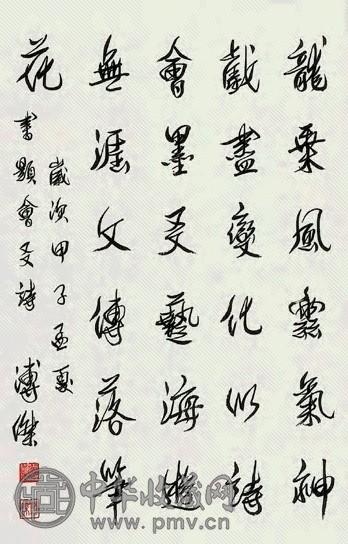 龍乘風雲氣神
戲盡變化以詩
會墨友藝海遊
無涯文傳落筆
花
歲次甲子孟夏
書題會友詩 溥傑
中华收藏网
www.pmv.cn